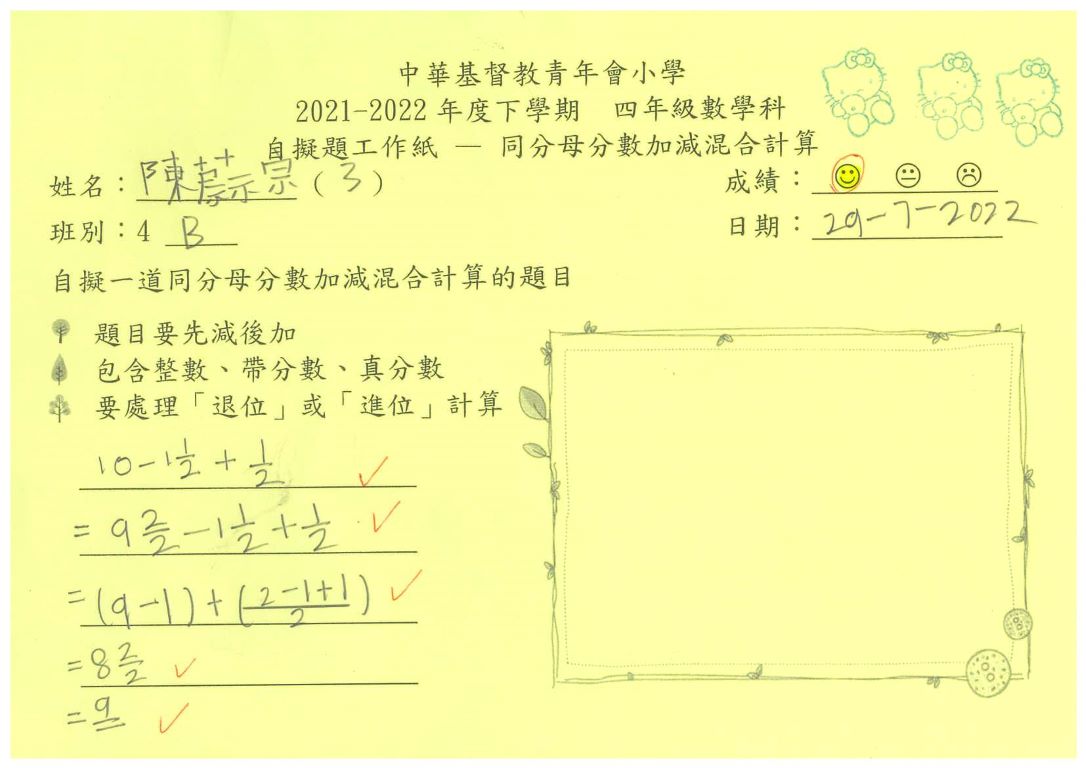 中華基督教青年會小學
2021-2022 年度下學期　四年級數學科
自擬題工作紙 — 同分母分數加減混合計算
姓名：陳蒜宗（3）
成績：
班別：4 B
日期：29-7-2022
自擬一道同分母分數加減混合計算的題目
題目要先減後加
包含整數、帶分數、真分數
要處理「退位」或「進位」計算
10-1 1/2 + 1/2
= 9 2/2 - 1 1/2 + 1/2
= (9-1) + (2-1+1/2)
= 8 2/2
= 9